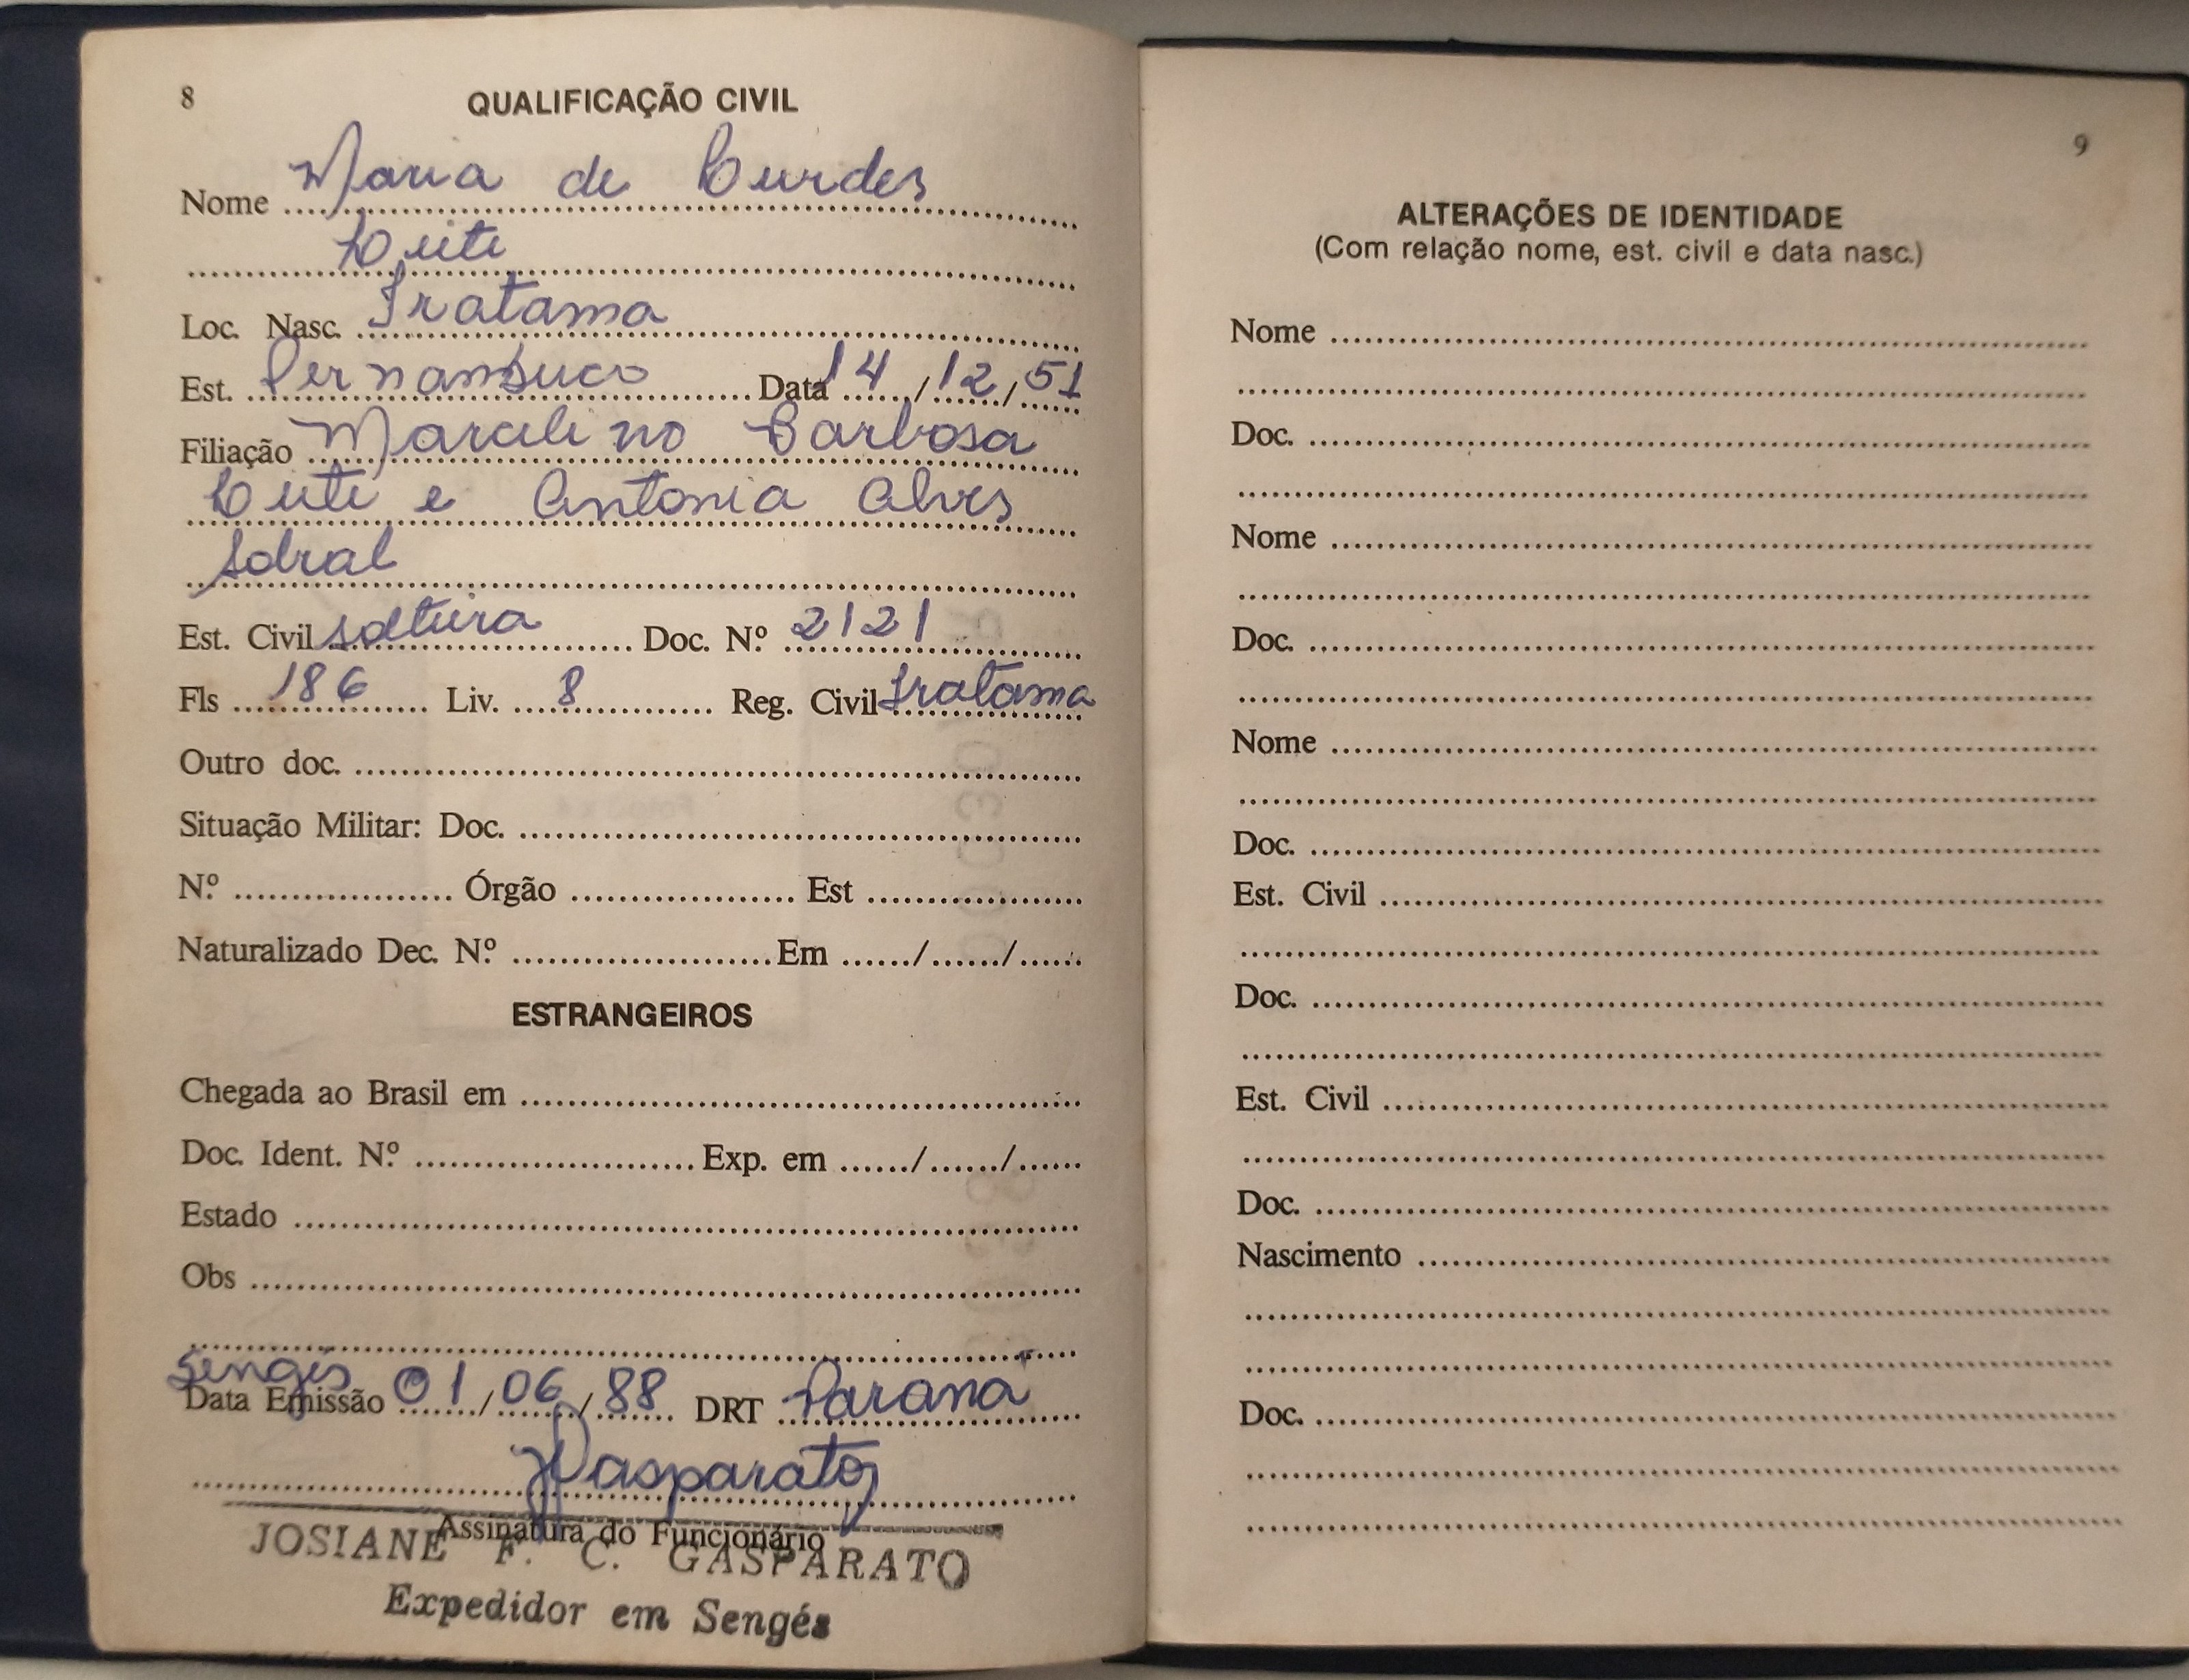 8
QUALIFICAÇÃO CIVIL
Nome Maria de Lurdes
Leite
Loc. Nasc. Iratama
Est. Pernambuco Data 14/12/51
Filiação Marcelino Barbosa
Leite e Antonia Alves
Sobral
Est. Civil solteira Doc. Nº 2121
Fls 186 Liv. 8 Reg. Civil Iratama
Outro doc.
Situação Militar: Doc.
Nº Órgão Est
Naturalizado Dec. Nº Em / /
ESTRANGEIROS
Chegada ao Brasil em
Doc. Ident. Nº Exp. em / /
Estado
Obs
Sengés
Data Emissão 01/06/88 DRT Paraná
Gasparato
Assinatura do Funcionário
JOSIANE F. C. GASPARATO
Expedidor em Sengés
9
ALTERAÇÕES DE IDENTIDADE
(Com relação nome, est. civil e data nasc.)
Nome
Doc.
Nome
Doc.
Nome
Doc.
Est. Civil
Doc.
Est. Civil
Doc.
Nascimento
Doc.